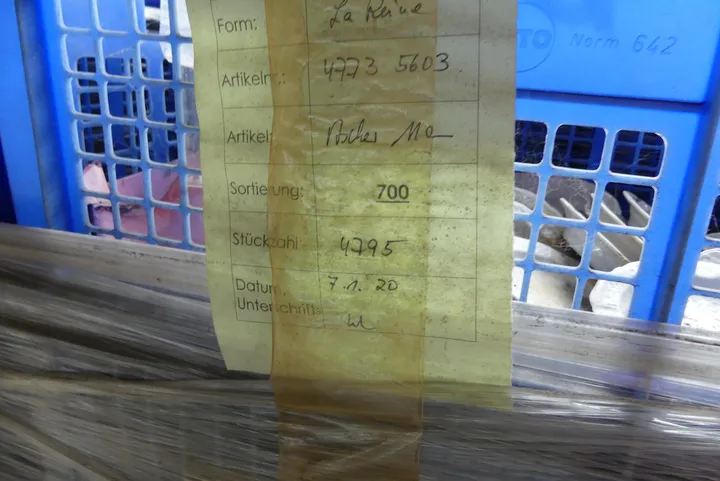 Form: La Reine
TO Norm 642
Artikelnr.: 4773 5603
Artikel:
Sortierung: 700
Stückzahl 4795
Datum 7.1.20
Unterschrift: